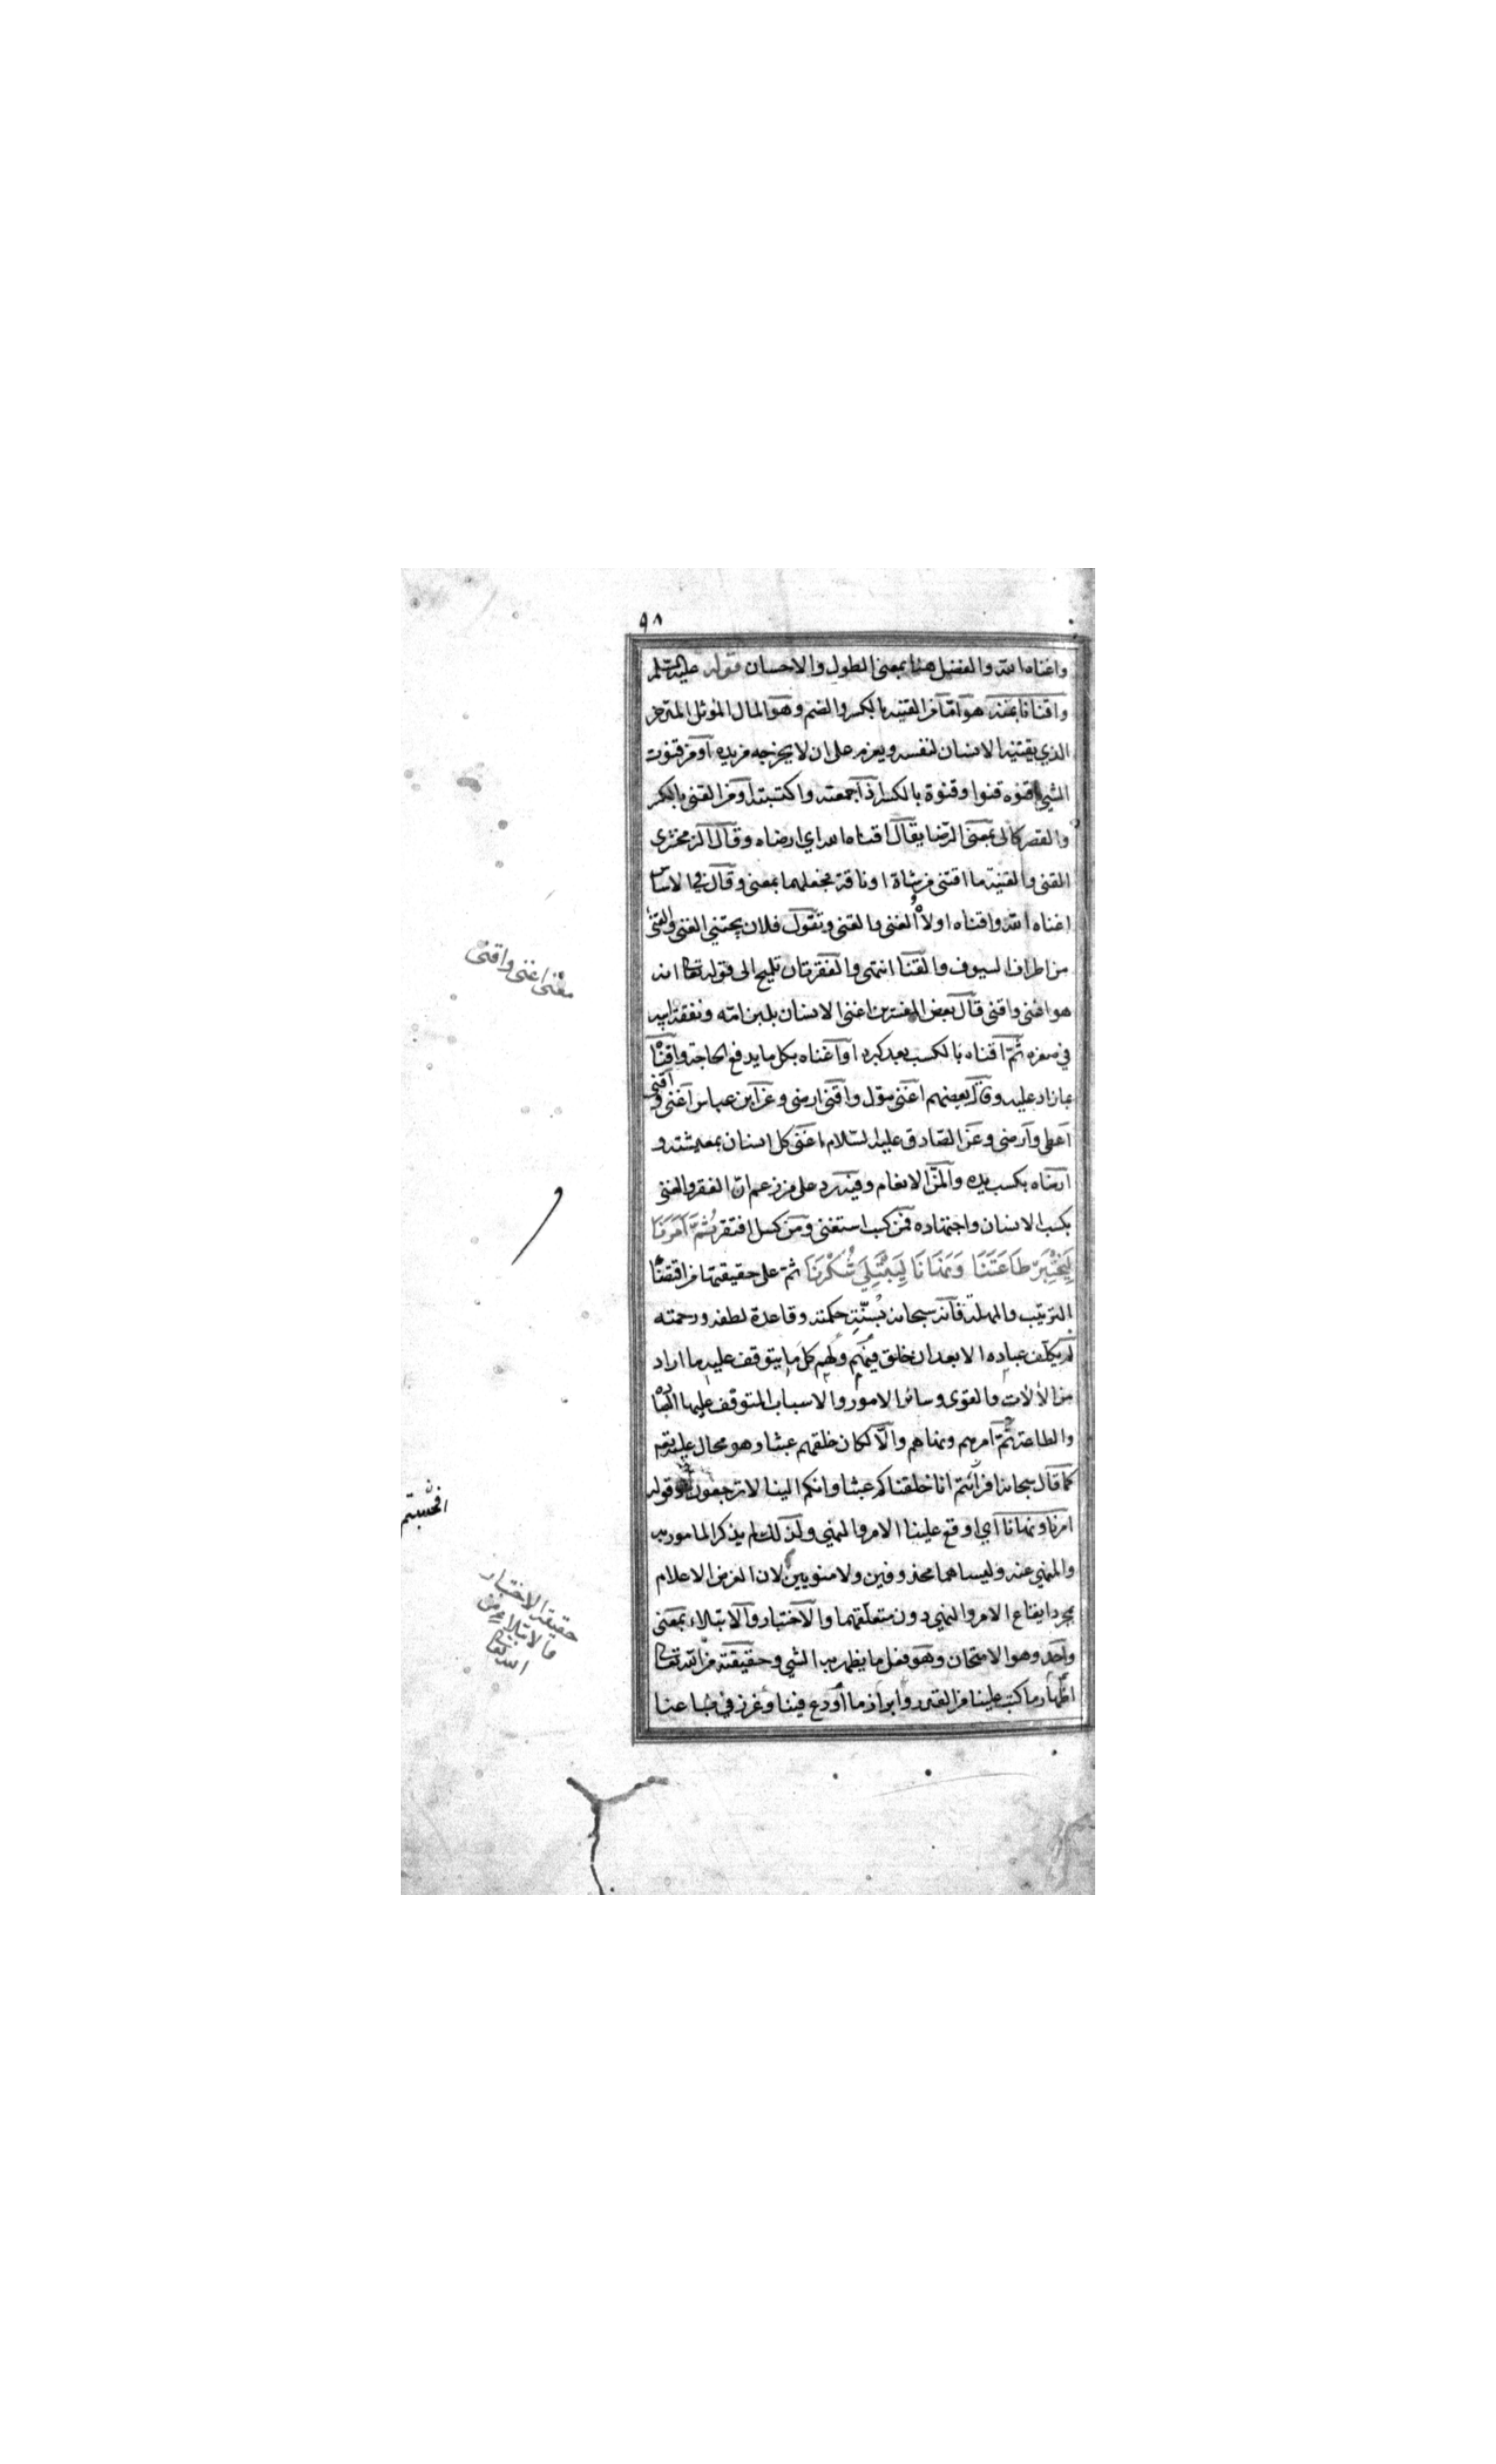 ٩٨
واغناه الله والفضل هنا بمعنى الطول والاحسان قوله عليه السلم
واقنانا بمنه هو امّا من القنية بالكسر والضم وهو المال المؤثل
الذي يقتنيه الانسان لنفسه ويعزم على ان لا يخرجه من يده او من قنوت
الشيء اقنوه قنوا وقنوة بالكسر اذا جمعته واكتسبته او من القنى بالكسر
والقصر كالى بمعنى الرّضا يقال اقناه الله اي ارضاه وقال الزمخشري
القنى والقنية ما اقتنى من شاة او ناقة فجعلهما بمعنى وقال في الاساس
اغناه الله واقناه اولاه الغنى والقنى وتقول فلان يجتني الغنى والقنى
من اطراف السيوف والقنا انتهى والفقرتان تلميح الى قوله تعالى انه
هو اغنى واقنى قال بعض المفسرين اغنى الانسان بلبن امّه ونفقة ابيه
في صغره ثمّ اقناه بالكسب بعد كبره او اغناه بكل ما يدفع الحاجة واقناه
بما زاد عليه وقال بعضهم اغنى موّل واقنى ارضى وعن ابن عباس اغنى و
اقنى
اعطى وارضى وعن الصّادق عليه السّلام اغنى كل انسان بمعيشته و
ارضاه بكسب يده والمنّ الانعام وفيه رد على من زعم انّ الفقر والغنى
بكسب الانسان واجتهاده فمن كسب استغنى ومن كسل افتقر ثُمَّ اَمَرَنَا
لِيَخْتَبِرَ طَاعَتَنَا وَنَهَانَا لِيَبْتَلِيَ شُكْرَنَا ثمّ على حقيقتها من اقتضاء
الترتيب والمهلة فانّه سبحانه بسنّة حكمته وقاعدة لطفه ورحمته
لم يكلّف عباده الا بعد ان خلق فيهم ولهم كل ما يتوقف عليه ما اراد
من الآلات والقوى وسائر الامور والاسباب المتوقف عليها
والطاعة ثمّ امرهم ونهاهم والّا لكان خلقهم عبثا وهو محال عليه
كما قال سبحانه انا خلقناكم عبثا وانكم الينا لا ترجعون وقوله
امرنا ونهانا اي اوقع علينا الامر والنهي ولذلك لم يذكر المامور به
والمنهي عنه وليسا هما محذوفين ولا منويين لان الغرض الاعلام
بمجرد ايقاع الامر والنهي دون متعلّقهما والاختبار والابتلاء بمعنى
واحد وهو الامتحان وهو فعل ما يظهر به الشي وحقيقته من الله تعالى
اظهار ما كتب علينا من القدر وابراز ما اودع فينا وغرز في طباعنا
معنى اغنى واقنى
افحسبتم
حقيقة الاختبار
والابتلاء من
الله تعالى